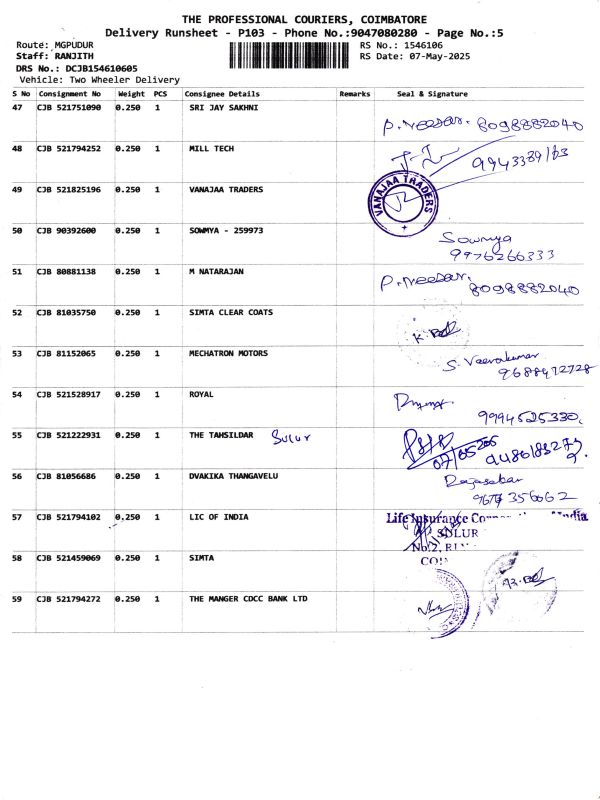 THE PROFESSIONAL COURIERS, COIMBATORE
Delivery Runsheet - P103 - Phone No.:9047080280 - Page No.:5
Route: MGPUDUR RS No.: 1546106
Staff: RANJITH RS Date: 07-May-2025
DRS No.: DCJB154610605
Vehicle: Two Wheeler Delivery
S No Consignment No Weight PCS Consignee Details Remarks Seal & Signature
47 CJB 521751090 0.250 1 SRI JAY SAKHNI
8098882040
48 CJB 521794252 0.250 1 MILL TECH
49 CJB 521825196 0.250 1 VANAJAA TRADERS
VANAJAA TRADERS
50 CJB 90392600 0.250 1 SOWMYA - 259973
Sowmya
9976266333
51 CJB 80881138 0.250 1 M NATARAJAN
8098882040
52 CJB 81035750 0.250 1 SIMTA CLEAR COATS
53 CJB 81152065 0.250 1 MECHATRON MOTORS
S. Veerakumar
9688972728
54 CJB 521528917 0.250 1 ROYAL
9994525330.
55 CJB 521222931 0.250 1 THE TAHSILDAR Sulur
56 CJB 81056686 0.250 1 DVAKIKA THANGAVELU
Rajasekar
57 CJB 521794102 0.250 1 LIC OF INDIA
Life Insurance India
SULUR
No.2,
58 CJB 521459069 0.250 1 SIMTA
59 CJB 521794272 0.250 1 THE MANGER CDCC BANK LTD